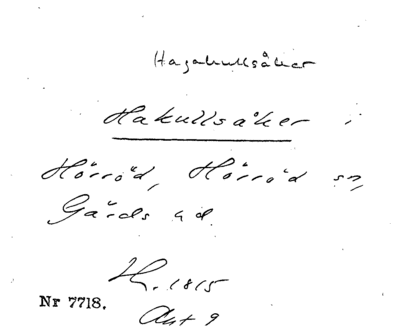 Hagakullsåker
Hakullsåker i
Hörröd, Hörröd sn,
Gärds hd.
H. 1815
Nr 7718.
Akt 9